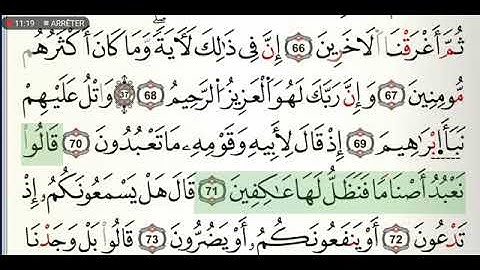 11:19 ■ ARRÊTER
ثُمَّ أَغْرَقْنَا اَ۬لَاخَرِينَ 66 إِنَّ فِے ذَٰلِكَ لَأٓيَةٗ وَمَا كَانَ أَكْثَرُهُم
مُّومِنِينَ 67 وَإِنَّ رَبَّكَ لَهُوَ اَ۬لْعَزِيزُ اُ۬لرَّحِيمُ 68 37 وَاتْلُ عَلَيْهِمْ
نَبَأَ اِ۪بْرَٰهِيمَ 69 إِذْ قَالَ لِأَبِيهِ وَقَوْمِهِۦ مَا تَعْبُدُونَ 70 قَالُواْ
نَعْبُدُ أَصْنَاماٗ فَنَظَلُّ لَهَا عَٰكِفِينَ 71 قَالَ هَلْ يَسْمَعُونَكُمُۥ إِذْ
تَدْعُونَ 72 أَوْ يَنفَعُونَكُمُۥ أَوْ يَضُرُّونَ 73 قَالُواْ بَلْ وَجَدْنَا